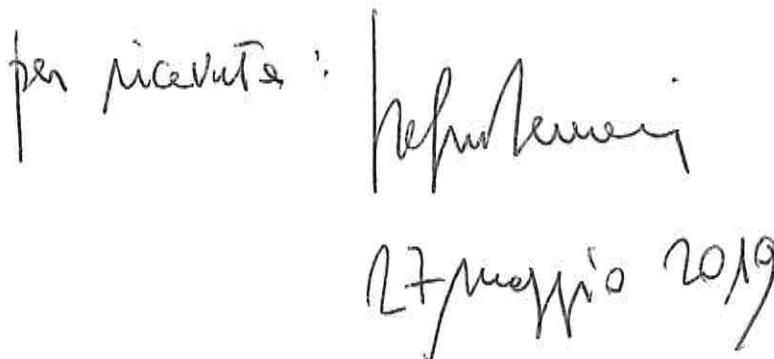 per ricevuta:
27 maggio 2019